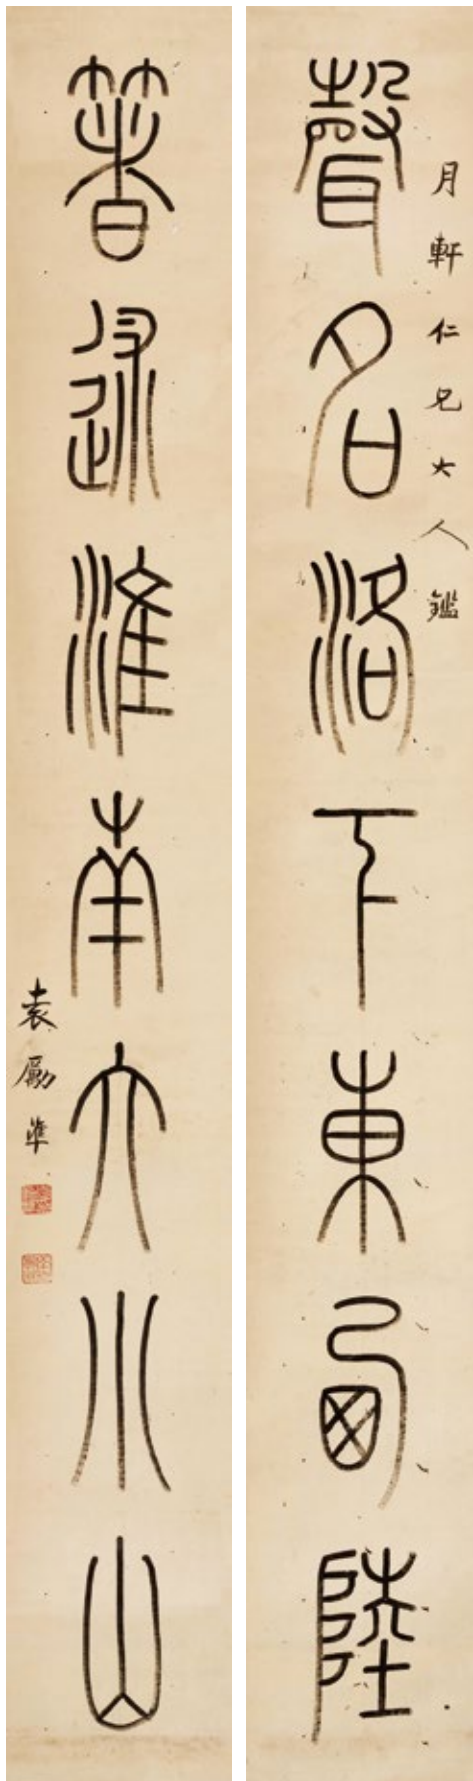 月軒仁兄大人鑑
聲名洛下東西陸
箸述淮南大小山
袁勵準